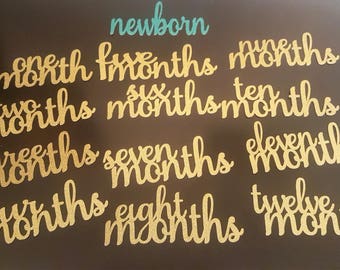 newborn
one
month
two
months
three
months
our
months
five
months
six
months
seven
months
eight
months
nine
months
ten
months
eleven
months
twelve
mon